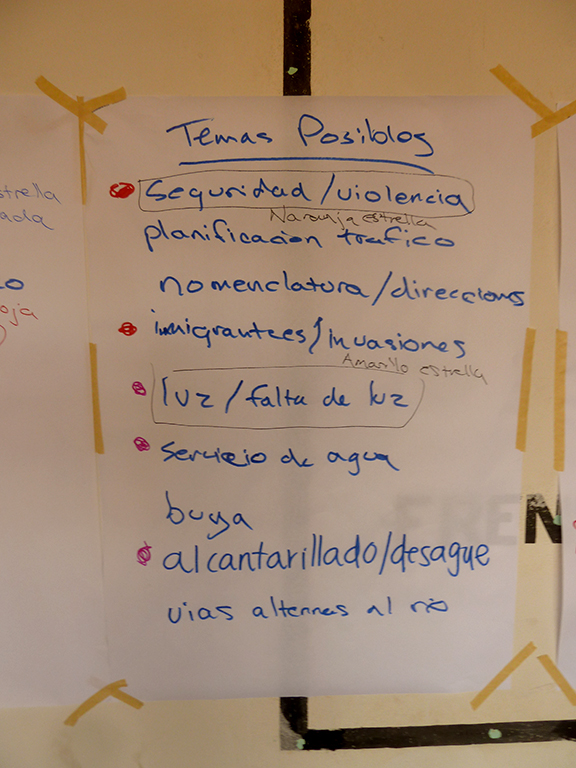 Temas Posiblos
seguridad/violencia
Naranja estrella
planificacion trafico
nomenclatura/direcciones
immigrantees/invasiones
Amarillo estrella
luz/falta de luz
servicio de agua
alcantarillado/desague
vias alternas al rio
strella
ada
oja
FREN